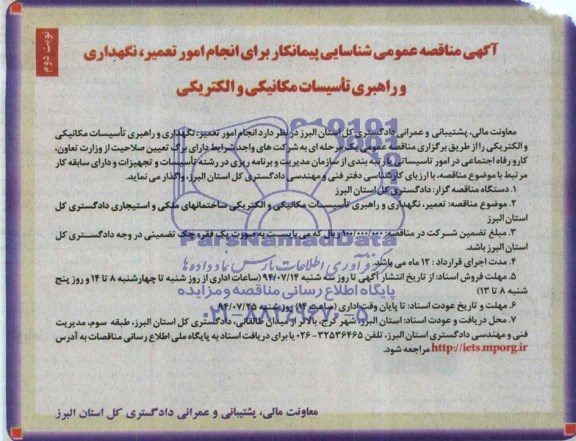 نوبت دوم
آگهی مناقصه عمومی شناسایی پیمانکار برای انجام امور تعمیر، نگهداری
و راهبری تأسیسات مکانیکی و الکتریکی
معاونت مالی، پشتیبانی و عمرانی دادگستری کل استان البرز در نظر دارد انجام امور تعمیر، نگهداری و راهبری تأسیسات مکانیکی
و الکتریکی را از طریق برگزاری مناقصه عمومی یک مرحله ای به شرکت های واجد شرایط دارای برگ تعیین صلاحیت از وزارت تعاون،
کار و رفاه اجتماعی در امور تاسیساتی یا رتبه بندی از سازمان مدیریت و برنامه ریزی در رشته تأسیسات و تجهیزات و دارای سابقه کار
مرتبط با موضوع مناقصه، با ارزیابی کارشناسی دفتر فنی و مهندسی دادگستری کل استان البرز، واگذار می نماید.
۱. دستگاه مناقصه گزار: دادگستری کل استان البرز
۲. موضوع مناقصه: تعمیر، نگهداری و راهبری تأسیسات مکانیکی و الکتریکی ساختمانهای ملکی و استیجاری دادگستری کل
استان البرز
۳. مبلغ تضمین شرکت در مناقصه: ۱۰۰/۰۰۰/۰۰۰ ریال که می بایست به صورت یک فقره چک تضمینی در وجه دادگستری کل
استان البرز باشد.
۴. مدت اجرای قرارداد: ۱۲ ماه می باشد.
۵. مهلت فروش اسناد: از تاریخ انتشار آگهی تا روز سه شنبه ۹۴/۰۷/۱۴ (ساعات اداری از روز شنبه تا چهارشنبه ۸ تا ۱۴ و روز پنج
شنبه ۸ تا ۱۳)
۶. مهلت و تاریخ عودت اسناد: تا پایان وقت اداری (ساعت ۱۴) روز شنبه ۹۴/۰۷/۲۵
۷. محل دریافت و عودت اسناد: استان البرز، شهر کرج، بالاتر از میدان طالقانی، دادگستری کل استان البرز، طبقه سوم، مدیریت
فنی و مهندسی دادگستری استان البرز، تلفن ۳۲۵۳۶۴۶۵-۰۲۶ یا برای دریافت اسناد به پایگاه ملی اطلاع رسانی مناقصات به آدرس
http://iets.mporg.ir مراجعه شود.
معاونت مالی، پشتیبانی و عمرانی دادگستری کل استان البرز
ParsNamadData
فرآوری اطلاعات پارس نماد داده ها
پایگاه اطلاع رسانی مناقصه و مزایده
۰۲۱-۸۸۳۴۹۶۷۰-۵